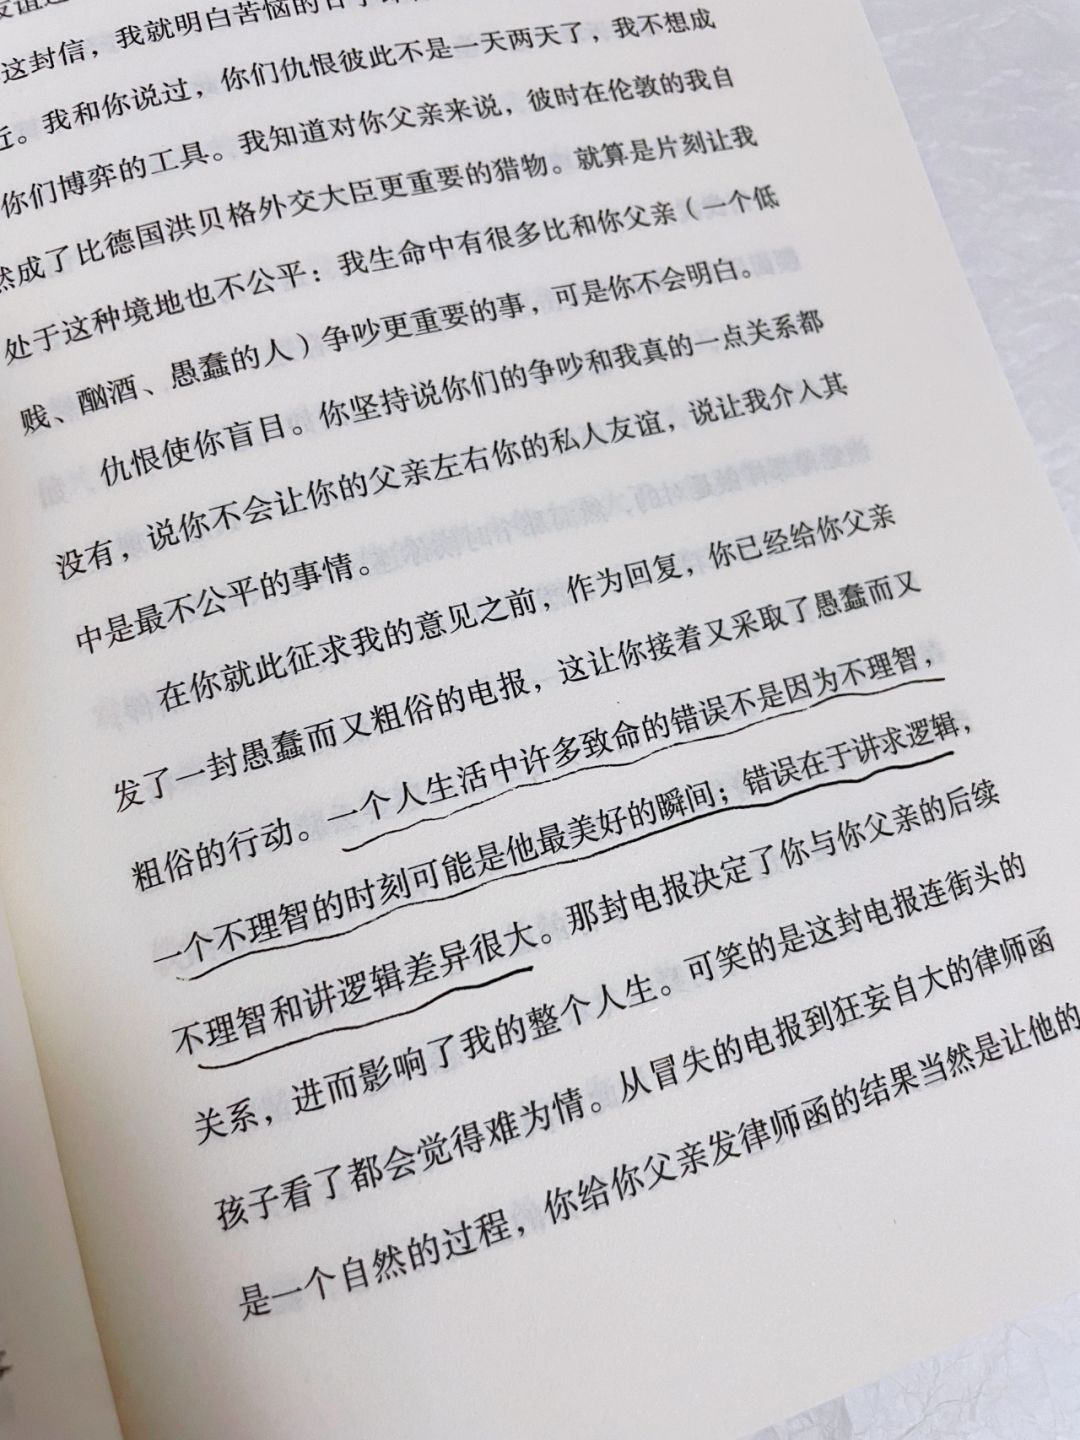 这封信，我就明白苦恼的日子
近。我和你说过，你们仇恨彼此不是一天两天了，我不想成
你们博弈的工具。我知道对你父亲来说，彼时在伦敦的我自
然成了比德国洪贝格外交大臣更重要的猎物。就算是片刻让我
处于这种境地也不公平：我生命中有很多比和你父亲（一个低
贱、酗酒、愚蠢的人）争吵更重要的事，可是你不会明白。
仇恨使你盲目。你坚持说你们的争吵和我真的一点关系都
没有，说你不会让你的父亲左右你的私人友谊，说让我介入其
中是最不公平的事情。
在你就此征求我的意见之前，作为回复，你已经给你父亲
发了一封愚蠢而又粗俗的电报，这让你接着又采取了愚蠢而又
粗俗的行动。一个人生活中许多致命的错误不是因为不理智，
一个不理智的时刻可能是他最美好的瞬间；错误在于讲求逻辑，
不理智和讲逻辑差异很大。那封电报决定了你与你父亲的后续
关系，进而影响了我的整个人生。可笑的是这封电报连街头的
孩子看了都会觉得难为情。从冒失的电报到狂妄自大的律师函
是一个自然的过程，你给你父亲发律师函的结果当然是让他的